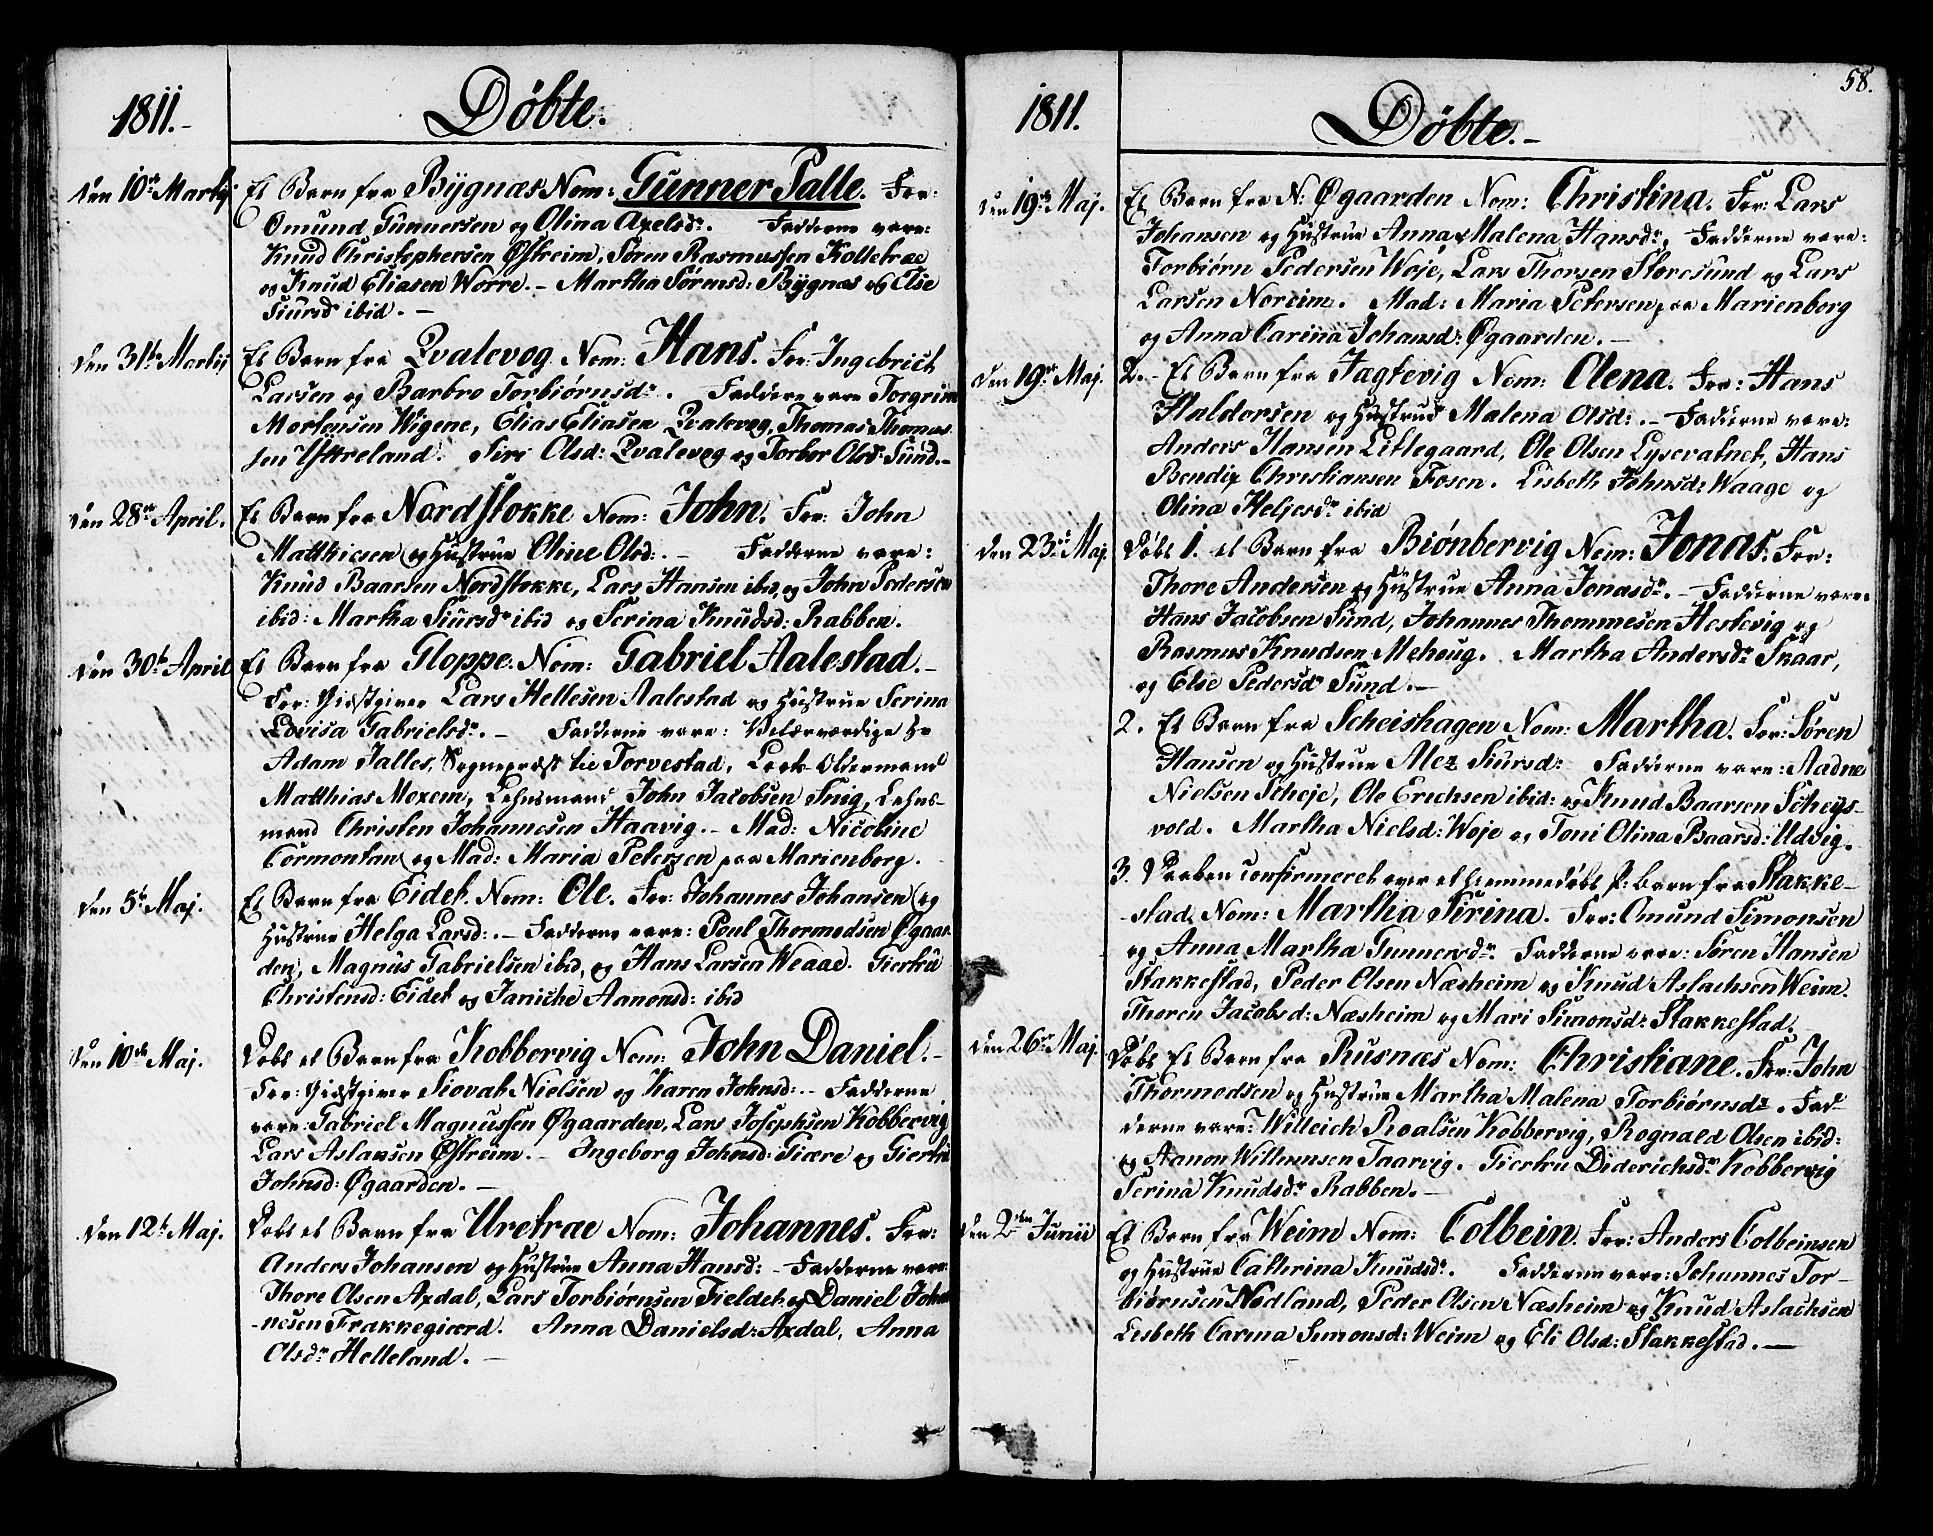 1811.-
Døbte.
den 10de Martij Et Barn fra Bygnæs Nom: Gunner Salle. For:
Omund Gunnersen og Olina Axelsdr. Fadderne vare:
Knud Christophersen Østreim, Sören Rasmussen Kolletræ
og Knud Eliasen Worre. - Martha Sørensd: Bygnæs og Else
Siursd ibid. -
den 31te Martij Et Barn fra Qvalevog Nom: Hans. For: Ingebrict
Larsen og Barbro Torbiørnsdr. Faddere vare Torgrim
Mortensen Wigene, Elias Eliasen Qvalevog, Thomas Thomas
sen Yttreland. Siri Olsd: Qvalevog og Torbor Olsd: Sund. -
den 28de April. Et Barn fra Nordstokke Nom: John. For: John
Matthiesen og Hustrue Oline Olsd: . - Fadderne vare:
Knud Baarsen Nordstokke, Lars Hansen ibid, og John Pedersen
ibid: Martha Siursdr ibid og Serina Knudsd: Rabben.
den 30te April Et Barn fra Gloppe. Nom: Gabriel Aalestad. -
For: Giestgiver Lars Hellesen Aalestad og Hustrue Serina
Lovisa Gabrielsdr. - Fadderne vare: Velærværdige Hr
Adam Jalles, Sognepræst til Torvestad, Lods Oldermand
Matthias Moxem, Lehnsmand John Jacobsen Snig, Lehns-
mand Christen Johannesen Haavig. - Mad: Nicoline
Cormontan og Mad: Maria Petersen paa Marienborg.
den 5te Maj. Et Barn fra Eidet. Nom: Ole. For: Johannes Johansen og
Hustrue Helga Larsd: . - Fadderne vare: Poul Thormodsen Øgaar
den, Magnus Gabrielsen ibid, og Hans Larsen Weaae. Giertru
Christensd: Eidet og Janicke Aanonsd: ibid
den 10de Maj. Døbt et Barn fra Kobbervig Nom: John Daniel. -
For: Giestgiver Siovat Nielsen og Karen Johnsd: - Fadderne
vare: Gabriel Magnussen Øgaarden, Lars Josephsen Kobbervig
Lars Aslaksen Østreim. - Ingeborg Johnsd: Giære og Giertru
Johnsd: Øgaarden. -
den 12te Maj. Døbt et Barn fra Uretræ Nom: Johannes. For:
Anders Johansen og Hustrue Anna Hansd: - Fadderne vare
Thore Olsen Axdal, Lars Torbiørnsen Fieldet og Daniel Johan
-nesen Frakkegiærd. Anna Danielsd: Axdal, Anna
Olsdr Helleland. -
58.
1811.
Døbte. -
den 19de Maj. Et Barn fra N: Øgaarden Nom: Christina. For: Lars
Johansen og Hustrue Anna Malena Hansdr. Fadderne vare:
Torbiørn Pedersen Woje, Lars Thorsen Storesund og Lars
Larsen Noreim. Mad: Maria Petersen paa Marienborg
og Anna Carina Johansd: Øgaarden. -
den 19de Maj. 2. - Et Barn fra Jagtevig Nom: Olena. For: Hans
Haldorsen og Hustrue Malena Olsd: . - Fadderne vare:
Anders Hansen Litlegaard, Ole Olsen Lysevatnet, Hans
Bendix Christiansen Fosen. Lisbeth Johnsd: Waage og
Olina Heljesdr ibid
den 23de Maj Døbt 1. et Barn fra Biønbervig Nom: Jonas. For:
Thore Andersen og Hustrue Anna Jonasdr. - Fadderne vare
Hans Jacobsen Sund, Johannes Thommesen Hestevig og
Rasmus Knudsen Mehoug. Martha Andersdr Skaar,
og Else Pedersdr Sund. -
2. Et Barn fra Scheishagen Nom: Martha. For: Søren
Hansen og Hustrue Alez Siursd: Fadderne vare: Aadne
Nielsen Scheje, Ole Erichsen ibid: og Knud Baarsen Scheys-
vold. Martha Nielsd: Woje og Toni Olina Baarsd: Udvig.
3. Daaben confirmeret over et hiemmedøbt P: Barn fra Stakke-
-stad, Nom: Martha Sirina. For: Omund Simonsen
og Anna Martha Gunnersdr. Fadderne vare: Søren Hansen
Stakkestad, Peder Olsen Næsheim og Knud Aslachsen Weim.
Thoren Jacobsd: Næsheim og Mari Simonsd: Stakkestad.
den 26de Maj Døbt Et Barn fra Rusnæs Nom: Christiane. For: John
Thormodsen og Hustrue Martha Malena Torbiørnsdr. Fad-
derne vare: Willeich Roalsen Kobbervig, Rognald Olsen ibid:
og Aanon Willumsen Taarvig. Giertru Diderichsdr Kobbervig
Serina Knudsdr Rabben. -
den 2den Junii Et Barn fra Weim Nom: Colbein. For: Anders Colbeinsen
og Hustrue Cathrina Knudsdr. Fadderne vare: Johannes Tor-
biørnsen Nodland, Peder Olsen Næsheim og Knud Aslachsen
Lisbeth Carina Simonsd: Weim og Eli Olsd: Stakkestad. -